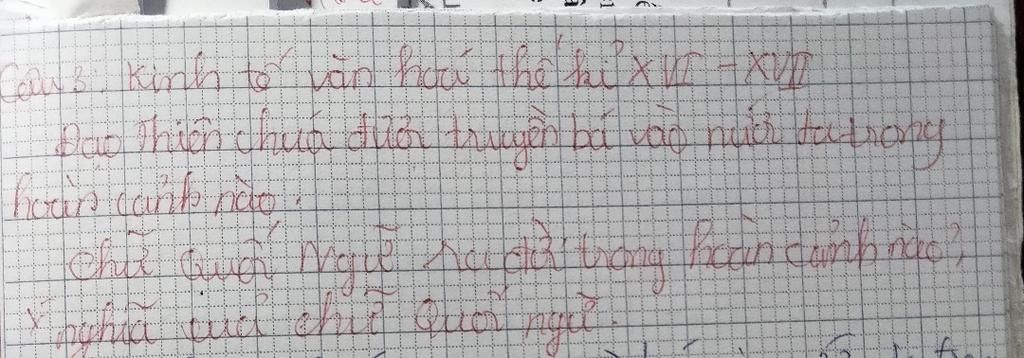 Câu 3: Kinh tế văn hoá thế kỉ XVI - XVII
Đạo Thiên chúa được truyền bá vào nước ta trong
hoàn cảnh nào.
Chữ Quốc Ngữ ra đời trong hoàn cảnh nào?
Ý nghĩa của chữ Quốc ngữ.